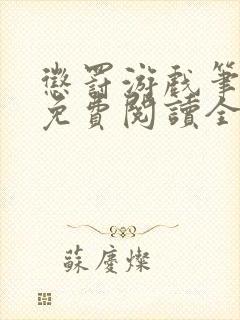 懲罰游戲筆
免費閱讀全
蘇慶燦